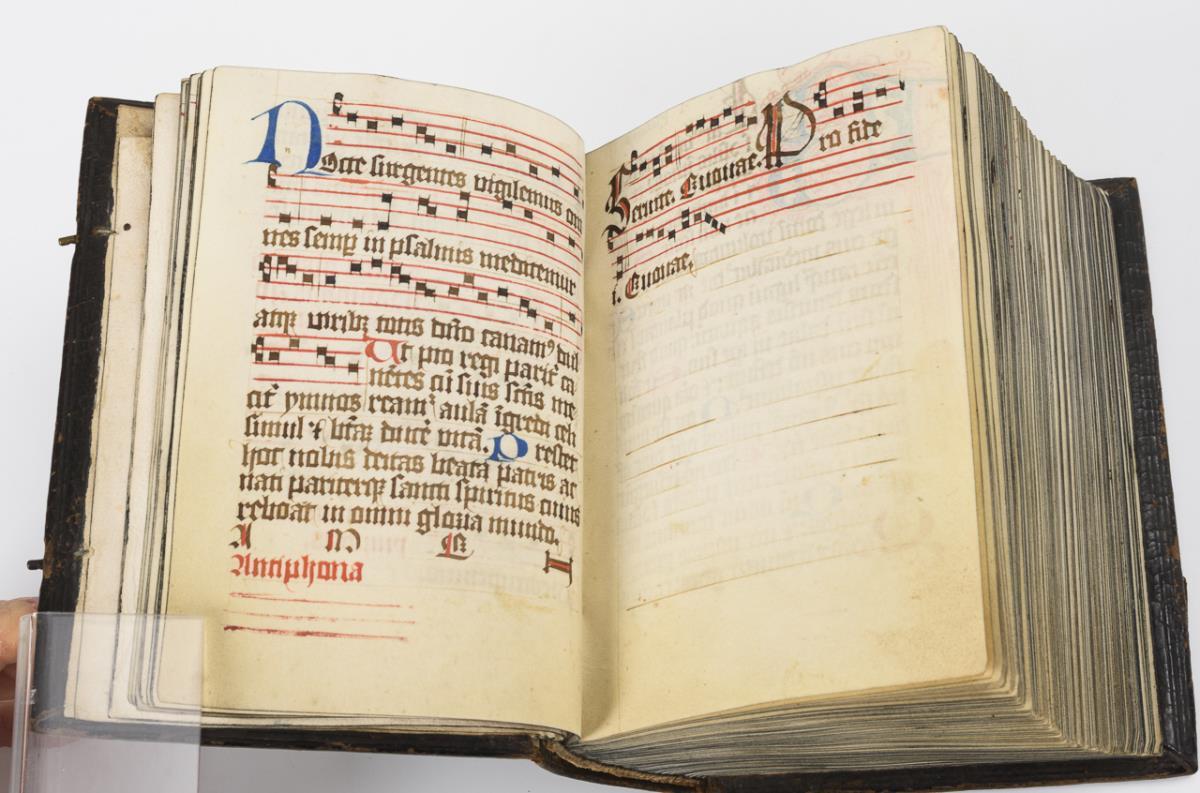 Nocte surgentes vigilemus om
nes semp in psalmis meditemur
atqꝫ viribꝫ totis dño canamꝰ dul
Ut pio regi parit̄ ca
nētes cū suis sctīs me
cit̄ ymnos reant̄ aulā īgredi celi
simul ⁊ btām ducē vitā. Prestet
hoc nobis deitas beata patris ac
nati pariterqꝫ sancti spiritus cuius
reboat in omni gloria mundo.
A M E N
Antiphona
Seruite. Euouae. Pro fide
i. Euouae.